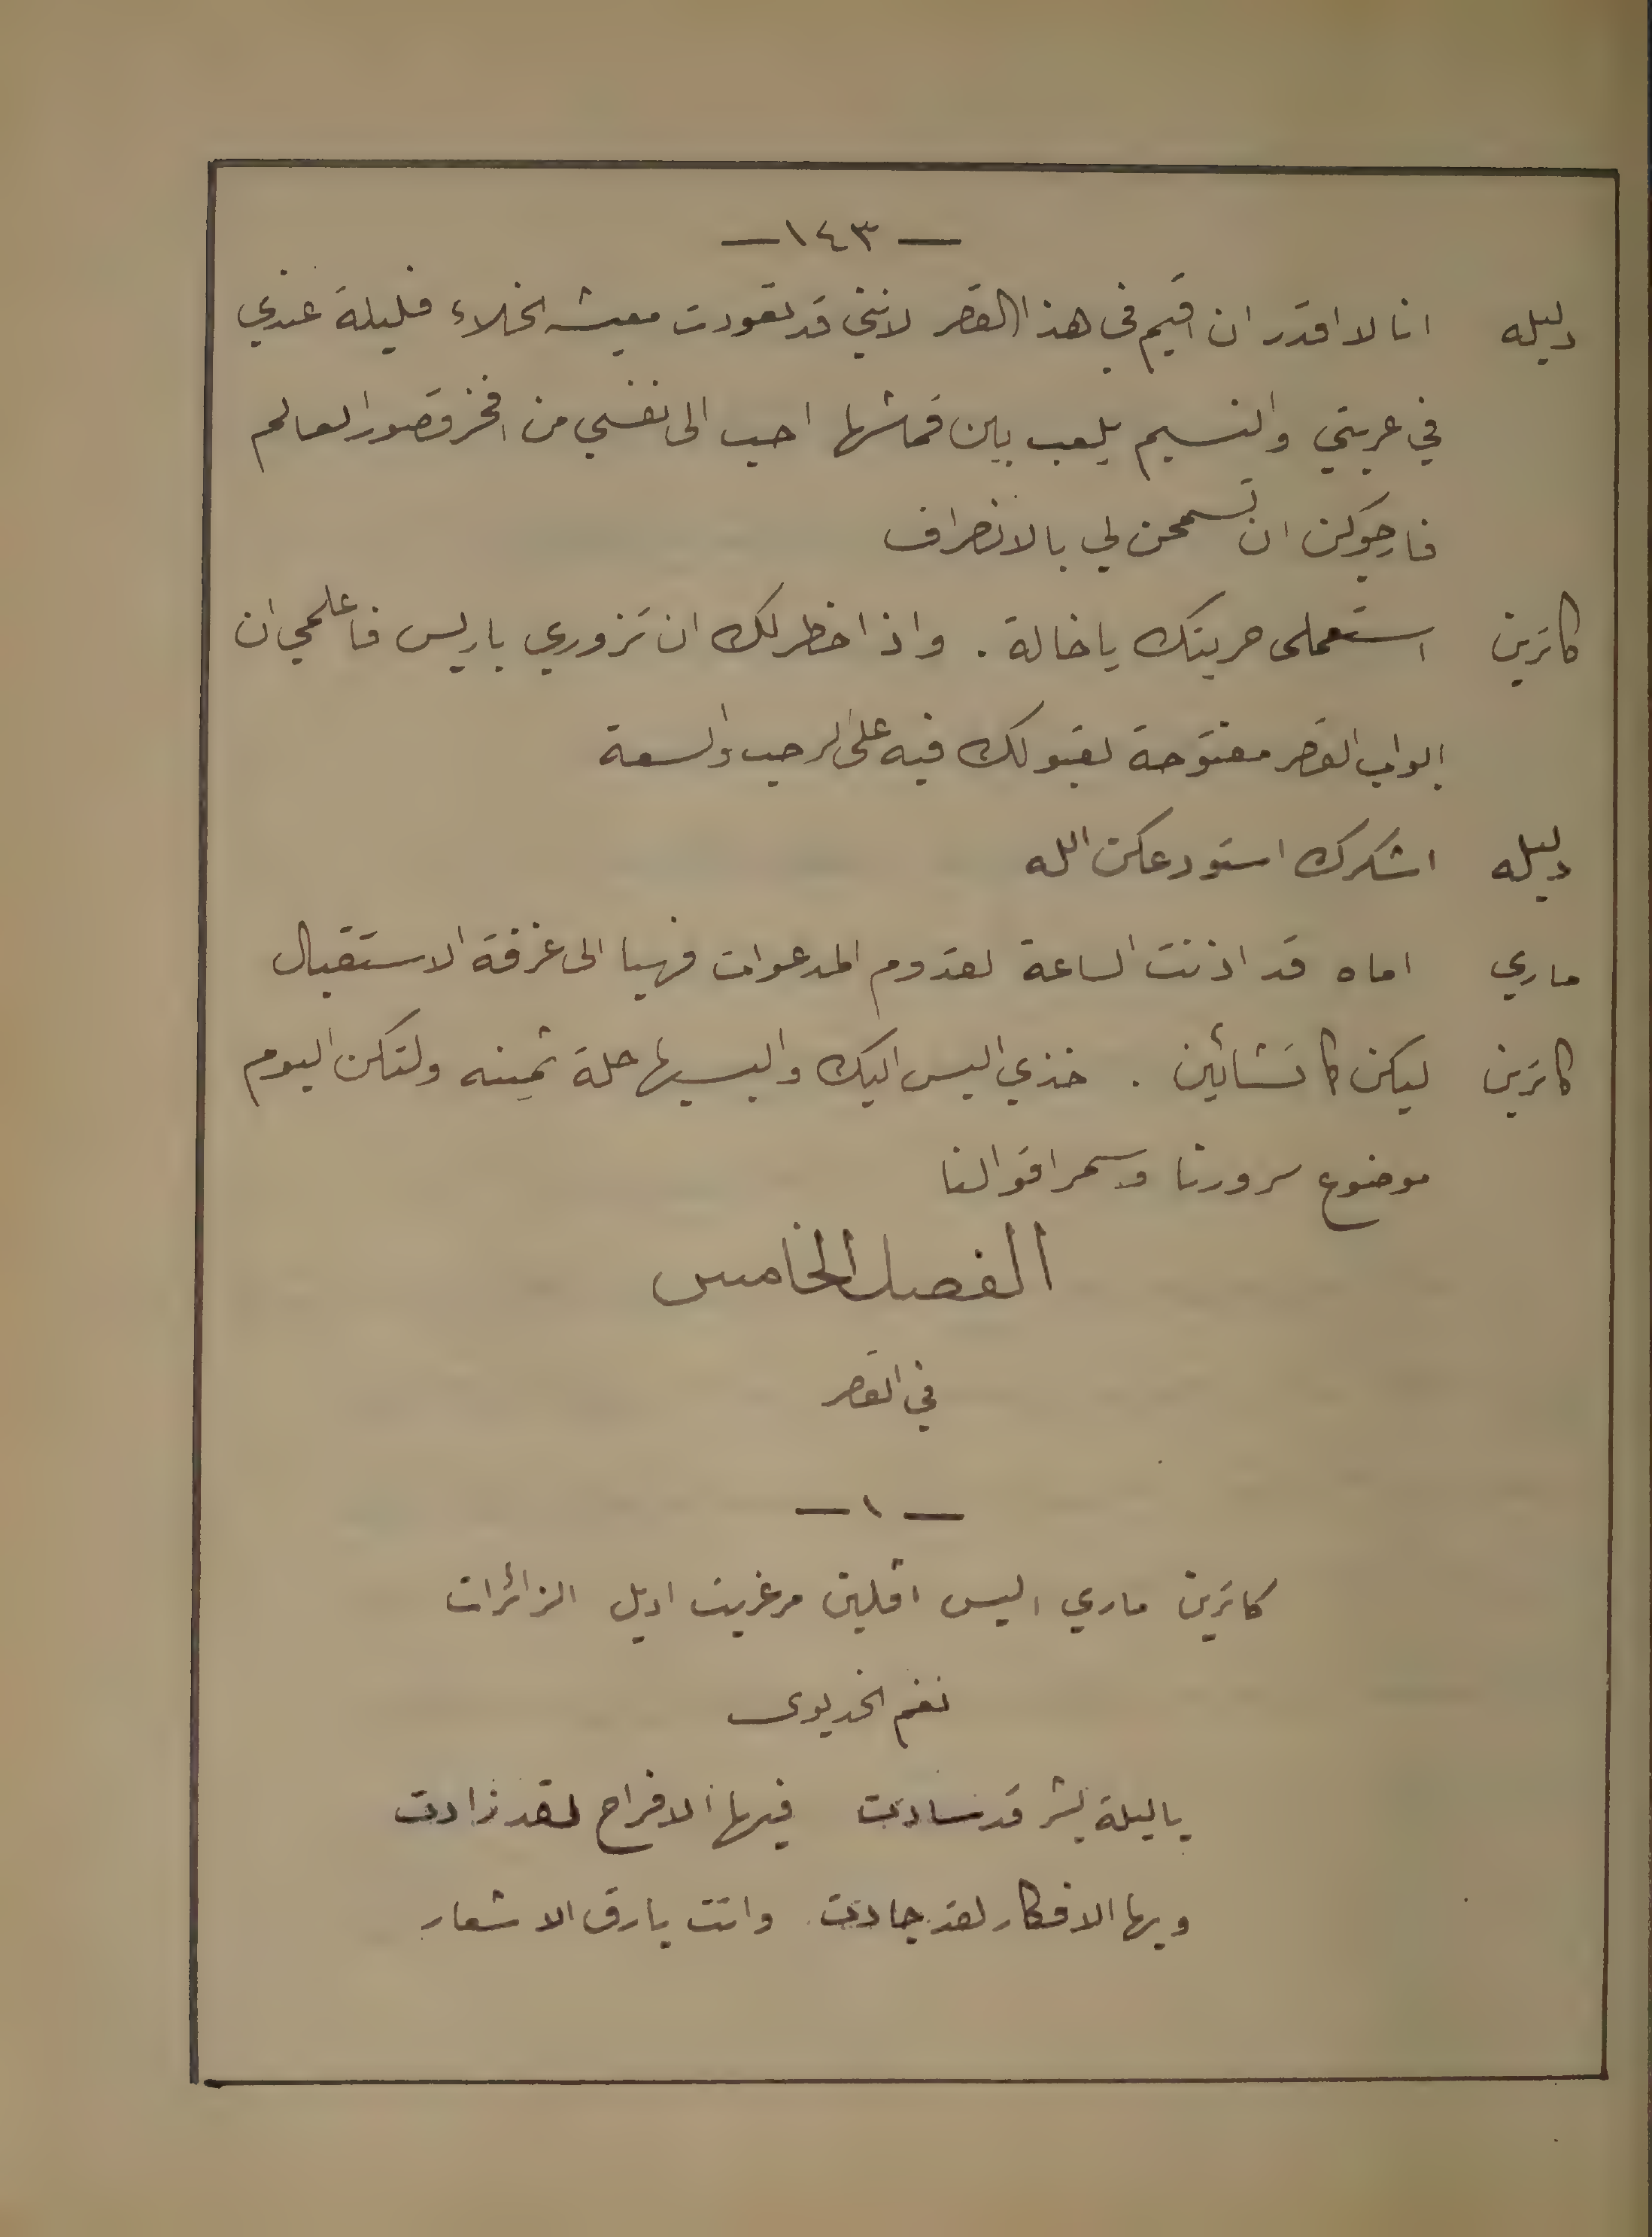 — ١٤٣ —
دليله انا لا اقدر ان اقيم في هذا القصر لانني قد تعودت معيشه الخلاء فليلة عندي
في عربتي والنسيم يلعب بين قماشها احب الى نفسي من افخر قصور العالم
فارجوكن ان تسمحن لي بالانصراف
كاترين استعملى حريتك ياخالة . واذا خطر لك ان تزوري باريس فاعلمي ان
ابواب القصر مفتوحة لقبولك فيه على الرحب والسعة
دليله اشكرك استودعكن الله
ماري اماه قد اذنت الساعة لقدوم المدعوات فهيا الى غرفة الاستقبال
كاترين ليكن كما تشائين . خذي اليس اليك والبسيها حلة ثمينه ولتكن اليوم
موضوع سرورنا وسمر اقوالنا
الفصل الخامس
في القصر
— ١ —
كاترين ماري اليس اڤلين مرغريت اديل الزائرات
نغم الخديوى
ياليلة بشر قد سادت فيها الافراح لقد زادت
وبها الافكار لقد جادت واتت بارق الاشعار